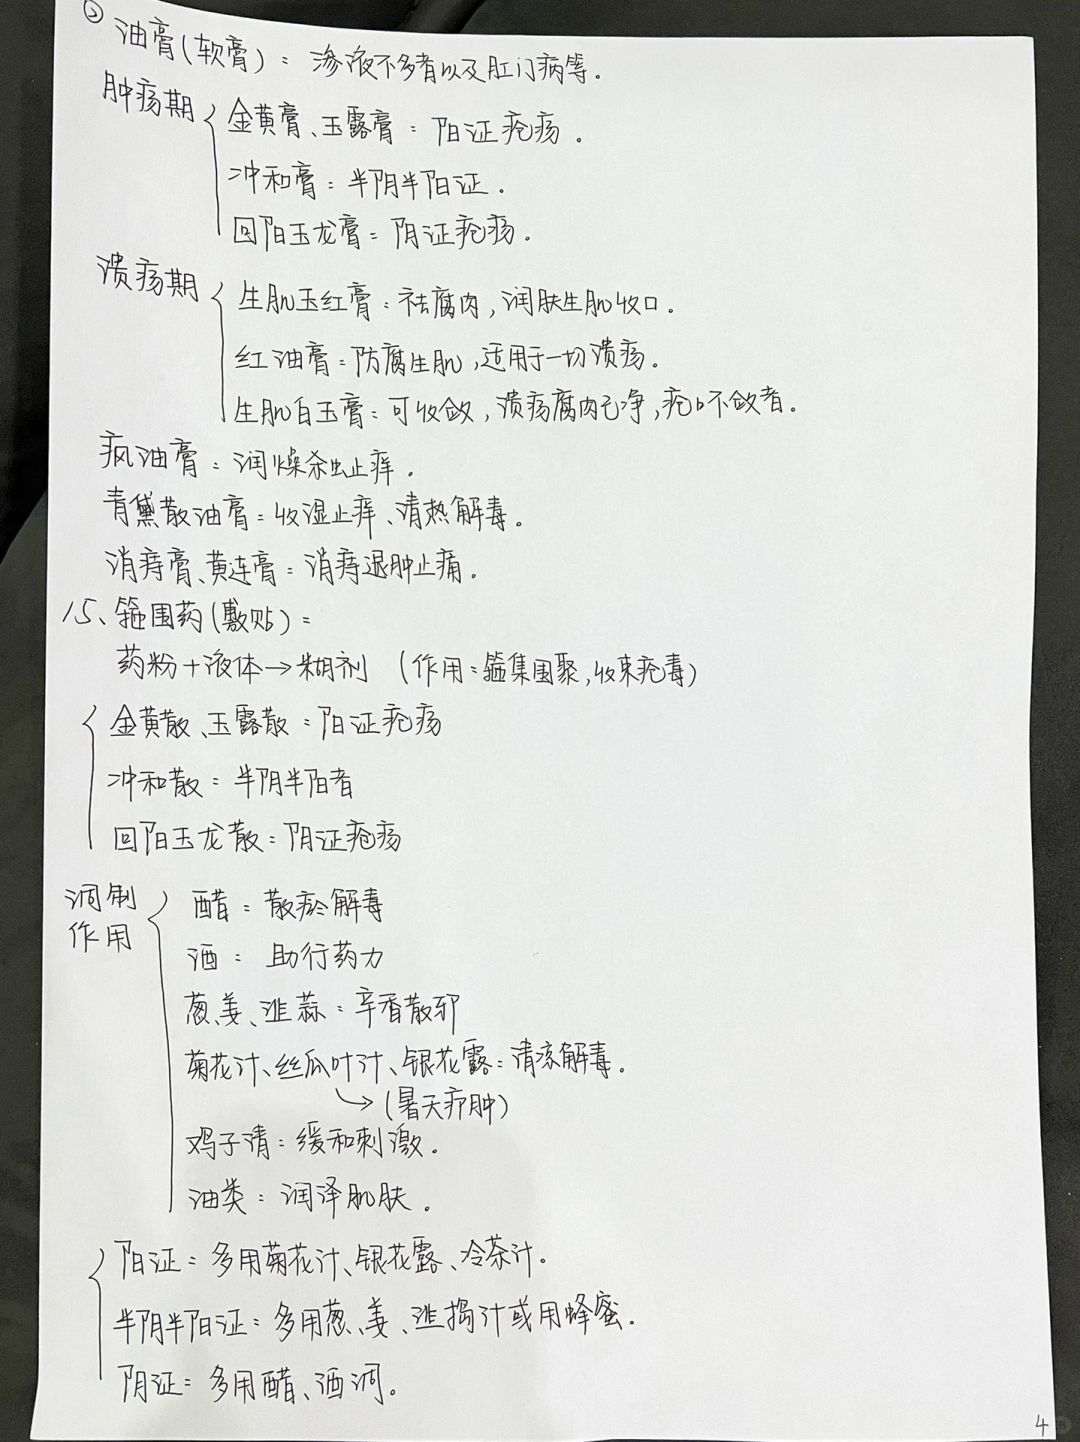 ② 油膏(软膏)：渗液不多者以及肛门病等.
肿疡期
金黄膏、玉露膏：阳证疮疡.
冲和膏：半阴半阳证.
回阳玉龙膏：阴证疮疡.
溃疡期
生肌玉红膏：祛腐肉,润肤生肌收口.
红油膏：防腐生肌,适用于一切溃疡.
生肌白玉膏：可收敛,溃疡腐肉已净,疮口不敛者.
疯油膏：润燥杀虫止痒.
青黛散油膏：收湿止痒、清热解毒.
消痔膏、黄连膏：消痔退肿止痛.
15、箍围药(敷贴)：
药粉+液体→糊剂 (作用：箍集围聚,收束疮毒)
金黄散、玉露散：阳证疮疡
冲和散：半阴半阳者
回阳玉龙散：阴证疮疡
调制作用
醋：散瘀解毒
酒：助行药力
葱、姜、韭蒜：辛香散邪
菊花汁、丝瓜叶汁、银花露：清凉解毒.
(暑天疖肿)
鸡子清：缓和刺激.
油类：润泽肌肤.
阳证：多用菊花汁、银花露、冷茶汁.
半阴半阳证：多用葱、姜、韭捣汁或用蜂蜜.
阴证：多用醋、酒调.
4